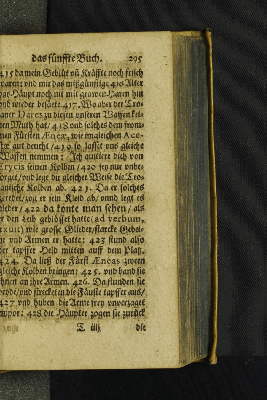 das fünffte Buch. 295
415 da mein Geblüt uñ Kräffte noch frisch
waren: und mir das mißgünstige 416 Alter
das Häupt noch nit mit grawen Haren hin
und wieder besäete. 417. Wo aber der Tro-
janer Dares zu diesen unseren Waffen kei-
nen Muth hat/ 418 und solches dem from-
men Fürsten Æneæ, wie imgleichen Ace-
stæ gut deucht/ 419 so lasset uns gleiche
Waffen nemmen: Jch quittire dich von
Erycis seinen Kolben/ 420 sey nur unbe-
sorget/ und lege du gleicher Weise die Tro-
janische Kolben ab. 421. Da er solches
geredet/ zog er sein Kleid ab/ unnd legt es
nieder/ 422 da konte man sehen/ als
er den Leib geblösset hatte (ad verbum,
exuit) wie grosse Glieder/ starcke Gebei-
ne und Armen er hatte: 423 stund also
der tapffer Held mitten auff dem Platz.
424. Da ließ der Fürst Æneas zween
gleiche Kolben bringen; 425. und band sie
ihnen an ihre Armen. 426. Da stunden sie
beyde/ und streckten die Fäuste tapffer aus/
427 und huben die Arme frey unverzaget
empor: 428 die Häupter zogen sie zurück
T iiij die